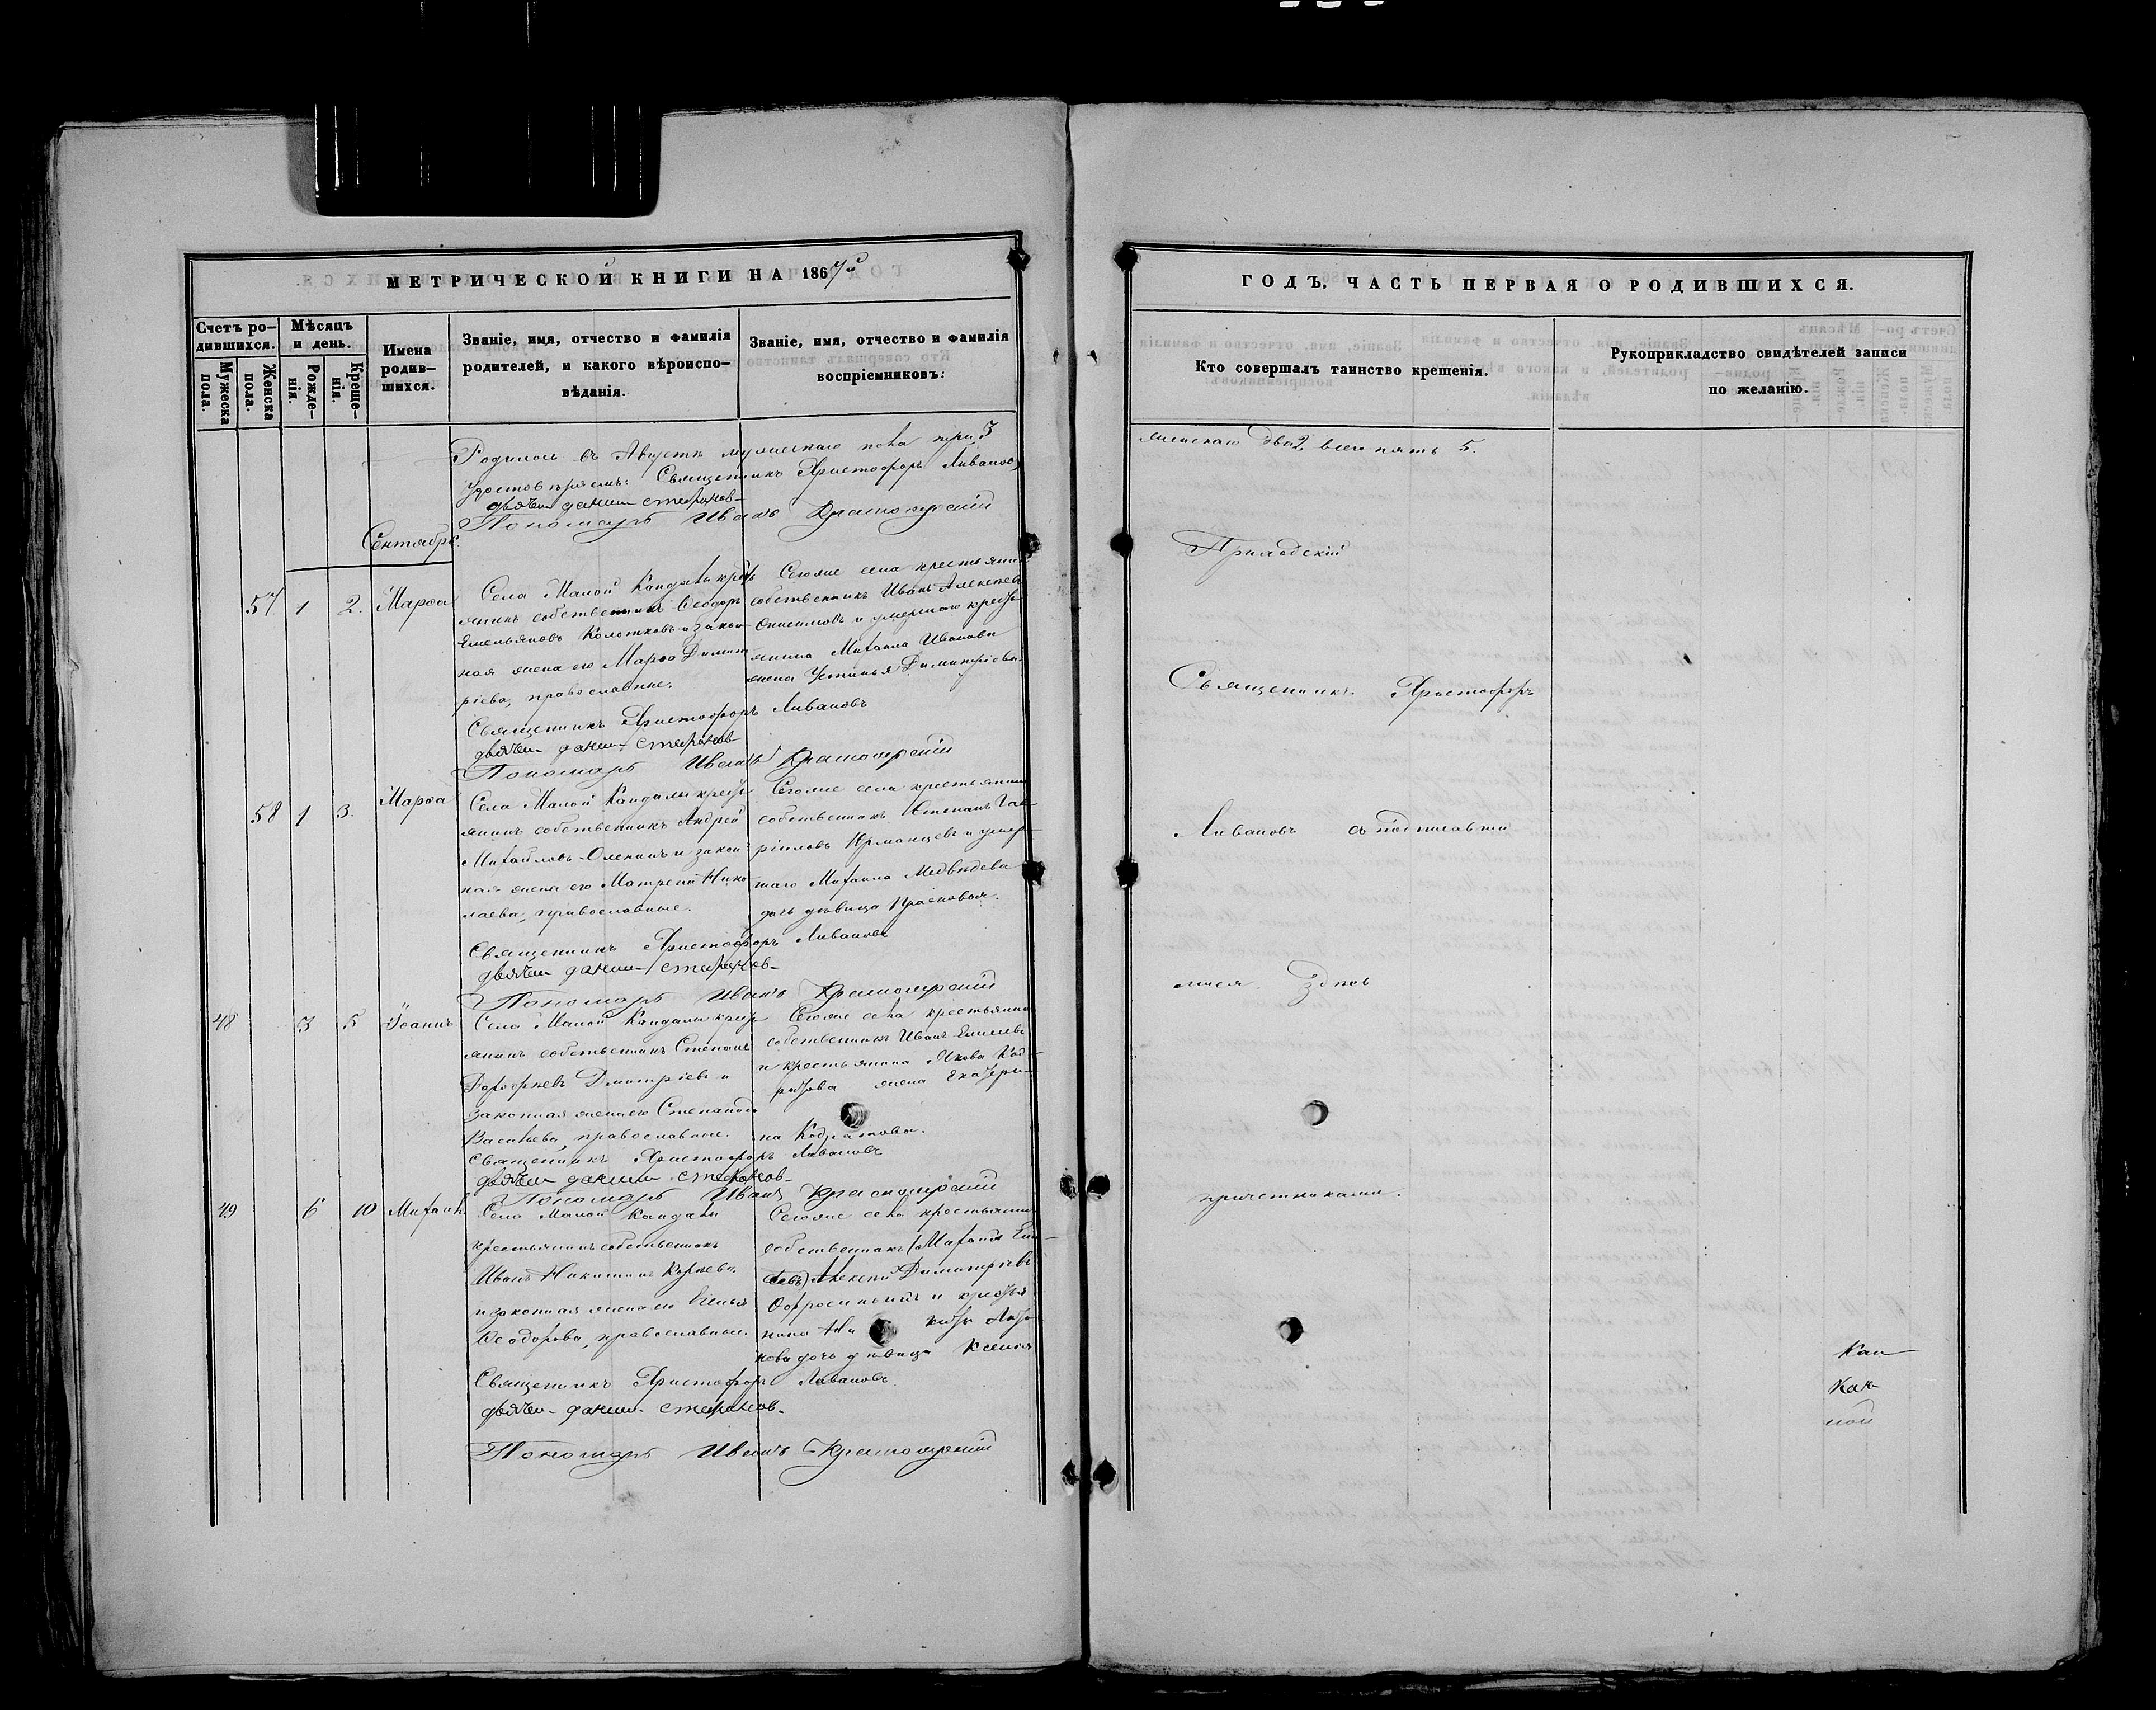 МЕТРИЧЕСКОЙ КНИГИ НА 1867й
Счетъ ро-
дившихся.
Мужеска
пола.
Женска
пола.
Мѣсяцъ
и день.
Рожде-
нія.
Креще-
нія.
Имена
родив-
шихся.
Званіе, имя, отчество и фамилія
родителей, и какого вѣроиспо-
вѣданія.
Званіе, имя, отчество и фамилія
воспріемниковъ:
Родилось въ Августѣ мужескаго пола три 3
Удостовѣряемъ: Священникъ Христофоръ Ливановъ
дьячекъ Стефановъ
Пономарь Иванъ
Сентябрь.
57 1 2. Марѳа
Села Малой Кандалы крестья
янинъ собственникъ Ѳеодоръ
Емельяновъ Колотковъ и закон
ная жена его Марѳа Димит
ріева, православные.
Тогоже села крестьянин
собственникъ Иванъ Алексѣевъ
Онисимовъ и умершаго кресть
янина Михаила Иванова
жена Устинья Димитріева.
Священникъ Христофоръ Ливановъ
дьячекъ Стефановъ
Пономарь Иванъ
58 1 3. Марѳа
Села Малой Кандалы кресть
янинъ собственникъ Андрей
Михайловъ Оленинъ и закон
ная жена его Матрена Нико
лаева, православные.
Тогоже села крестьянин
собственникъ Степанъ Гав
риловъ Юрманцевъ и умер-
шаго Михаила Медвѣдева
дочь дѣвица Прасковья.
Священникъ Христофоръ Ливановъ
дьячекъ Стефановъ
Пономарь Иванъ
48 3 5 Іоаннъ
Села Малой Кандалы кресть
янинъ собственникъ Степанъ
Дорофѣевъ Дмитріевъ и
законная жена его Степанида
Васильева, православные.
Тогоже села крестьянин
собственникъ Иванъ Елисѣевъ
и крестьянина Якова Код-
ратова жена Екатери-
на Кодратова.
Священникъ Христофоръ Ливановъ
дьячекъ Стефановъ
Пономарь Иванъ
49 6 10 Михаилъ
Села Малой Кандалы
крестьянинъ собственникъ
Иванъ Никитинъ
и законная жена его
Ѳеодорова, православные.
Тогоже села крестьянин
собственникъ
Алексей Димитріевъ
и крестья
нина
нова дочь дѣвица Ксенія
Священникъ Христофоръ Ливановъ
дьячекъ Стефановъ
Пономарь Иванъ
ГОДЪ, ЧАСТЬ ПЕРВАЯ О РОДИВШИХСЯ.
Кто совершалъ таинство крещенія.
Рукоприкладство свидѣтелей записи
по желанію.
женскаго два 2 всего пять 5.
Приходскій
Священникъ Христофоръ
Ливановъ съ подписавши
мися здѣсь
причетниками.